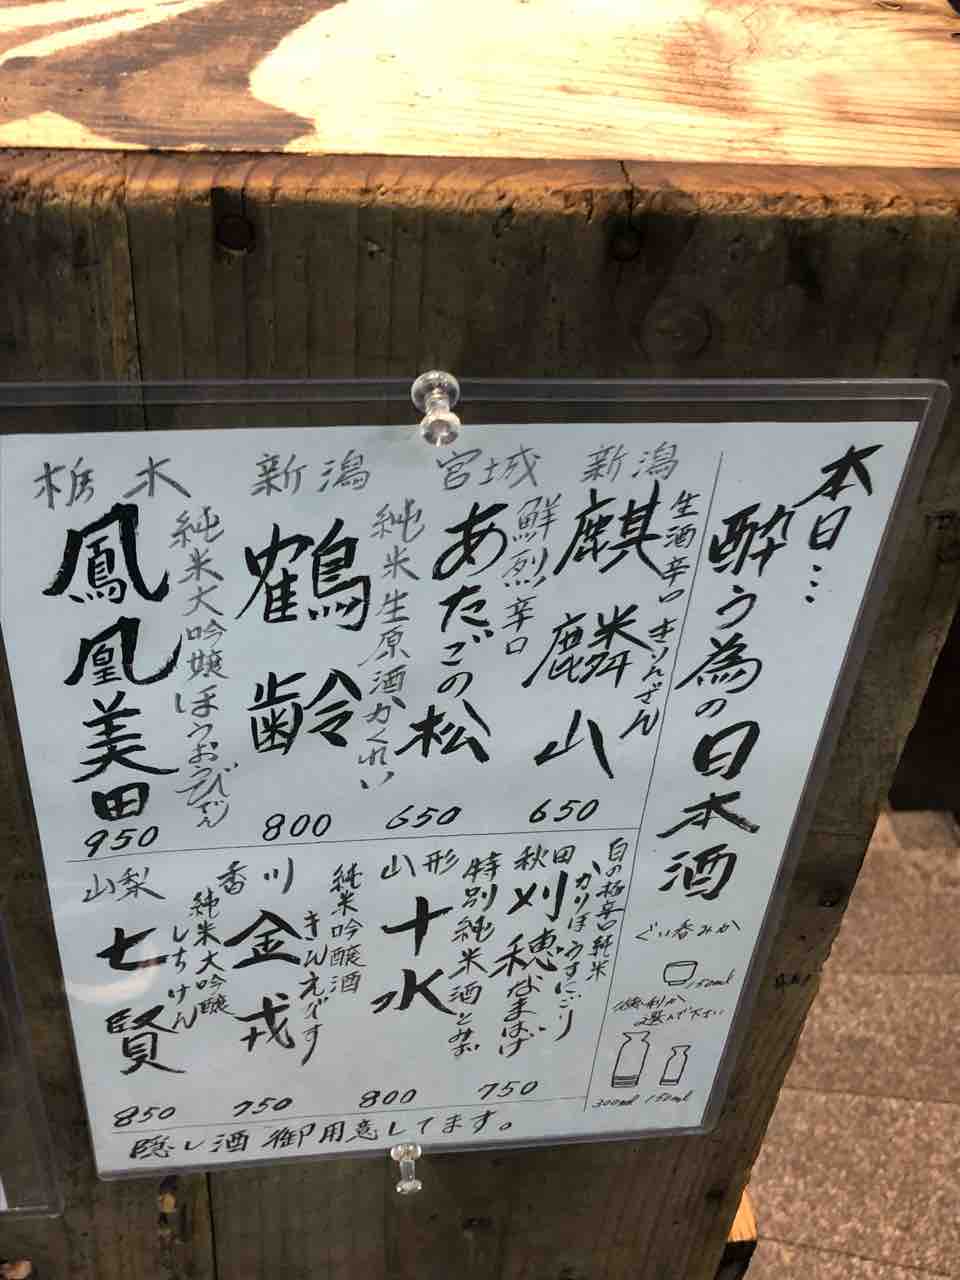 本日…
酔う為の日本酒
ぐい呑みか
150ml
徳利か
選んで下さい
300ml 150ml
新潟
生酒辛口 きりんざん
麒麟山
650
宮城
鮮烈辛口
あたごの松
650
新潟
純米生原酒 かくれい
鶴齢
800
栃木
純米大吟嬢 ほうおうびでん
鳳凰美田
950
秋田
白の極辛口純米
かりほ うすにごり
刈穂 なまはげ
750
山形
特別純米酒 とみず
十水
800
香川
純米吟醸酒
きんえびす
金戎
750
山梨
純米大吟醸
しちけん
七賢
850
隠し酒御用意してます。